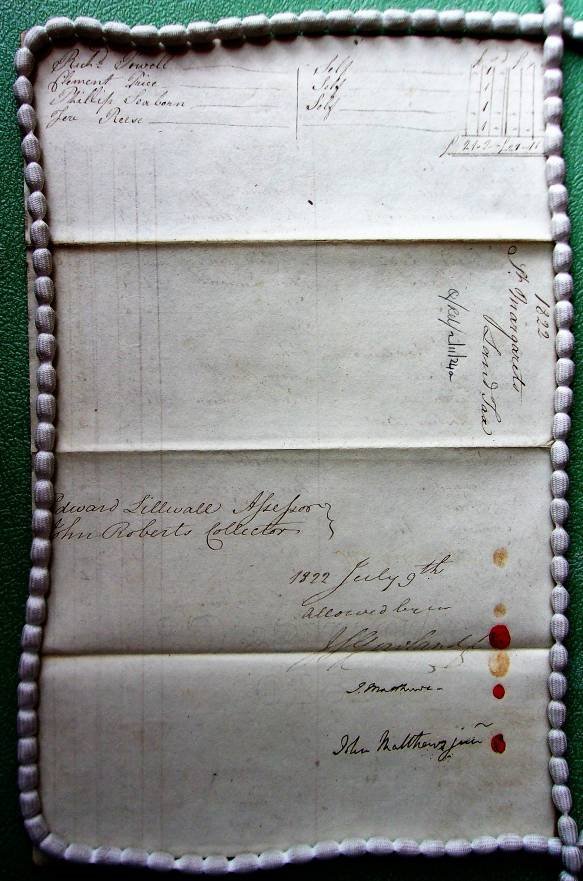 Richd Powell Self 1
Clement Price Self 1
Phillip Seaborn Self 1
Jere Reese 1
1822
St. Margarets
Land Tax
Edward Lillwall Assessor
John Roberts Collector
1822 July 9th
allowed by us
J. Matthews
John Matthews junr